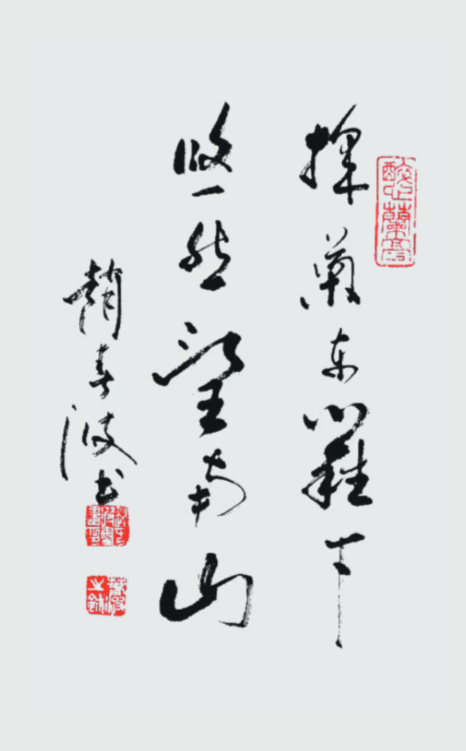 採菊东篱下
悠然望南山
趙春波书